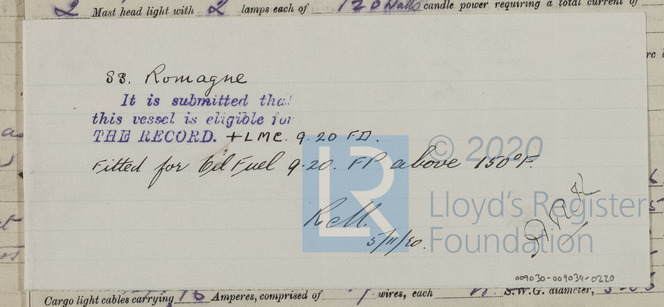 2 Mast head light with 2 lamps each of 120 Watts candle power requiring a total current of
SS. Romagne
It is submitted that
this vessel is eligible for
THE RECORD. + LMC. 9.20 FD.
Fitted for Oil Fuel 9.20. FP above 150°F.
© 2020
LR
Lloyd's Register
Foundation
5/11/20.
009030-009039-0220
Cargo light cables carrying 16 Amperes, comprised of 7 wires, each S.W.G. diameter,